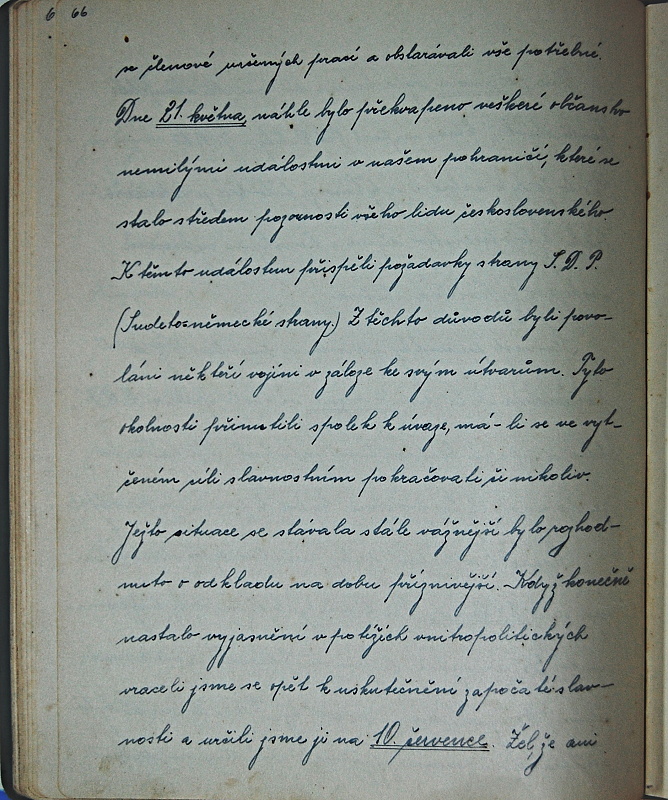 6 66
se členové určených prací a obstarávali vše potřebné.
Dne 21. května, náhle bylo překvapeno veškeré občanstvo
nemilými událostmi v našem pohraničí, které se
stalo středem pozornosti všeho lidu československého.
K těmto událostem přispěli požadavky strany S. D. P.
(Sudeto-německé strany.) Z těchto důvodů byli povo-
láni někteří vojíni v záloze ke svým útvarům. Tyto
okolnosti přinutili spolek k úvaze, má-li se ve vyt-
čeném cíli slavnostním pokračovati či nikoliv.
Ježto situace se stávala stále vážnější bylo rozhod-
nuto o odkladu na dobu příznivější. Když konečně
nastalo vyjasnění v potížích vnitropolitických
vraceli jsme se opět k uskutečnění započaté slav-
nosti a určili jsme ji na 10. července. Žel, že ani